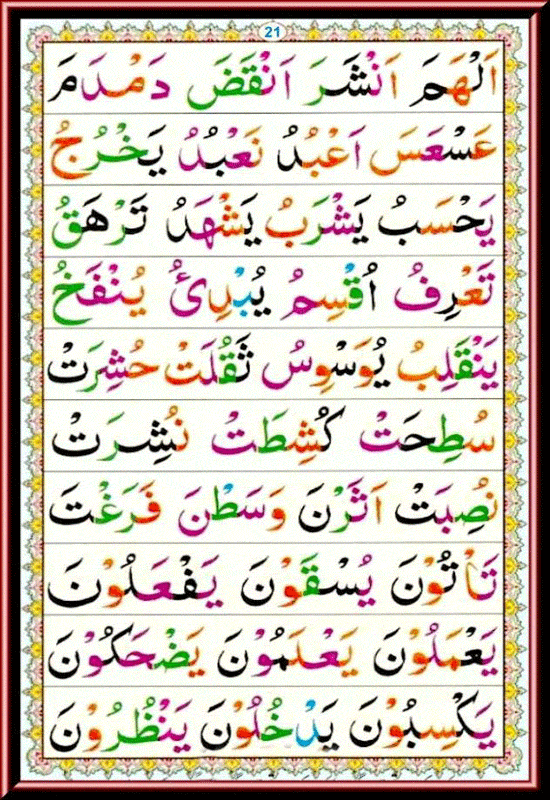 21
اَلْهَمَ اَنْشَرَ اَنْقَضَ دَمْدَمَ
عَسْعَسَ اَعْبُدُ نَعْبُدُ يَخْرُجُ
يَحْسَبُ يَشْرَبُ يَشْهَدُ تَرْهَقُ
تَعْرِفُ اُقْسِمُ يُبْدِئُ يُنْفَخُ
يَنْقَلِبُ يُوَسْوِسُ ثَقُلَتْ حُشِرَتْ
سُطِحَتْ كُشِطَتْ نُشِرَتْ
نُصِبَتْ اَثَرْنَ وَسَطْنَ فَرَغْتَ
تَأْتُوْنَ يُسْقَوْنَ يَفْعَلُوْنَ
يَعْمَلُوْنَ يَعْلَمُوْنَ يَضْحَكُوْنَ
يَكْسِبُوْنَ يَدْخُلُوْنَ يَنْظُرُوْنَ